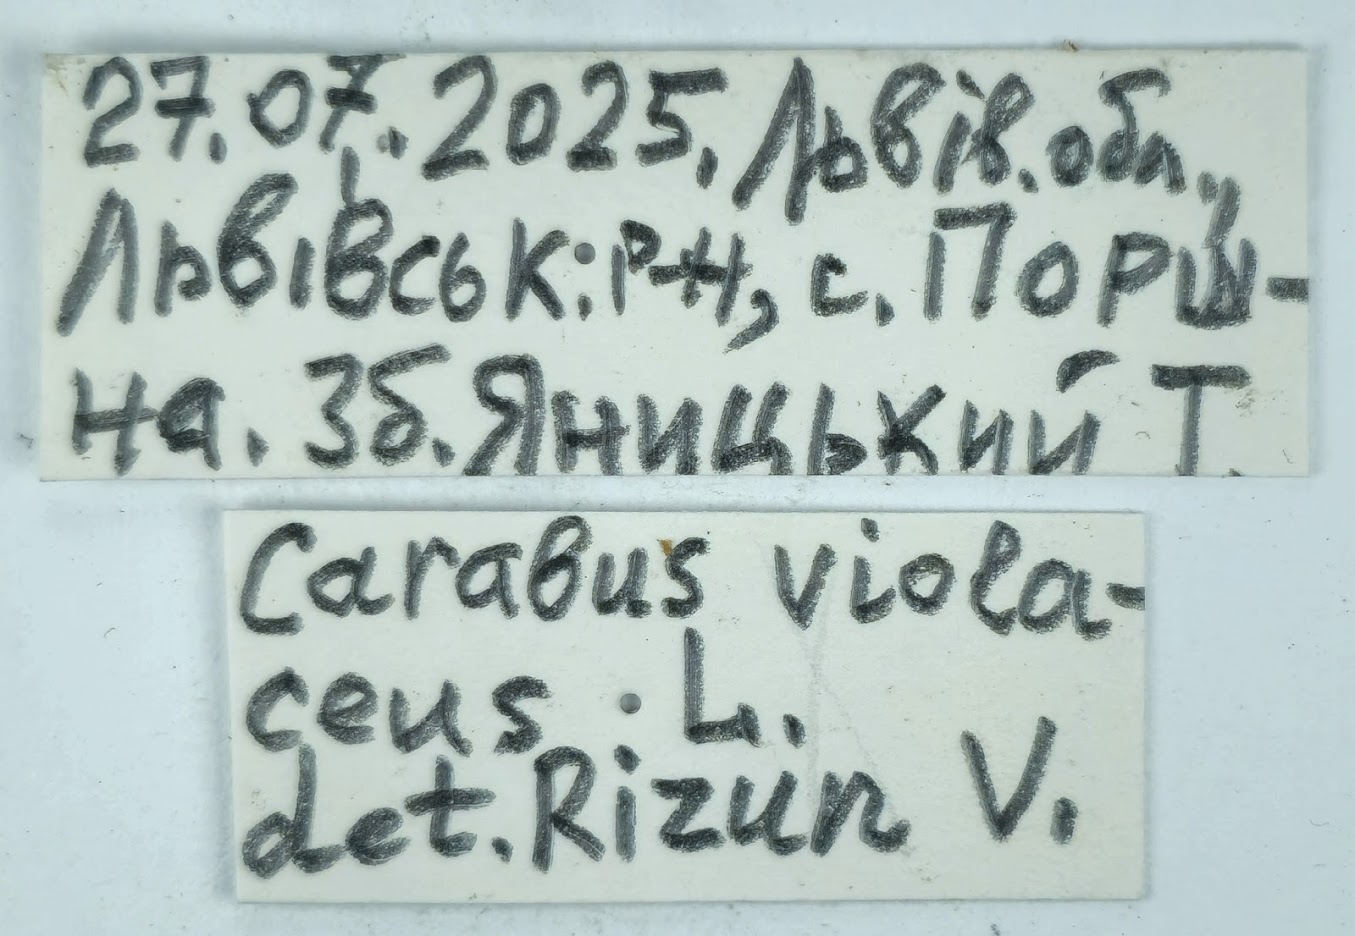 27.07.2025. Львів. обл.,
Львівськ. р-н, с. Порш-
на. Зб. Яницький Т.
Carabus viola-
ceus L.
det. Rizun V.